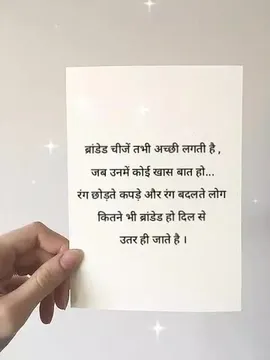 ब्रांडेड चीजें तभी अच्छी लगती है ,
जब उनमें कोई खास बात हो...
रंग छोड़ते कपड़े और रंग बदलते लोग
कितने भी ब्रांडेड हो दिल से
उतर ही जाते है ।